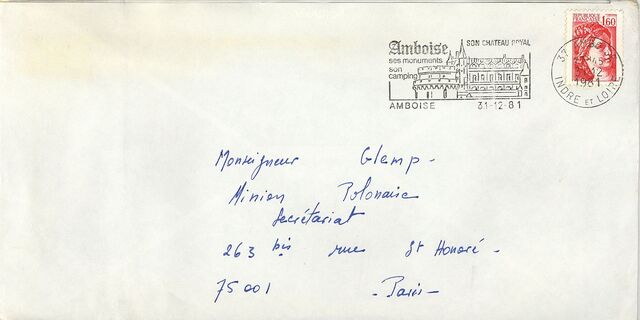 Amboise SON CHATEAU ROYAL
ses monuments
son
camping
AMBOISE 31-12-81
1.60
37
1981
INDRE ET LOIRE
Monseigneur Glemp -
Mission Polonaise
Secrétariat
263 bis rue St Honoré -
75001 - Paris -